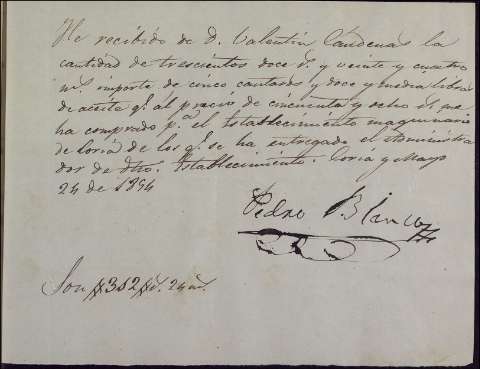 He recibido de D. Valentin Cardenas la
cantidad de trescientos doce r.s y veinte y cuatro
m.s importe de cinco cantaros y doce y media libras
de aceite q.e al precio de cincuenta y ocho r.s me
ha comprado p.a el Establecimiento maquinaria
de Coria de los q.e se ha entregado el Administra
dor de dho. Establecimiento. Coria y Mayo
24 de 1854
Pedro Blanco
Son #312# r.s 24 m.s